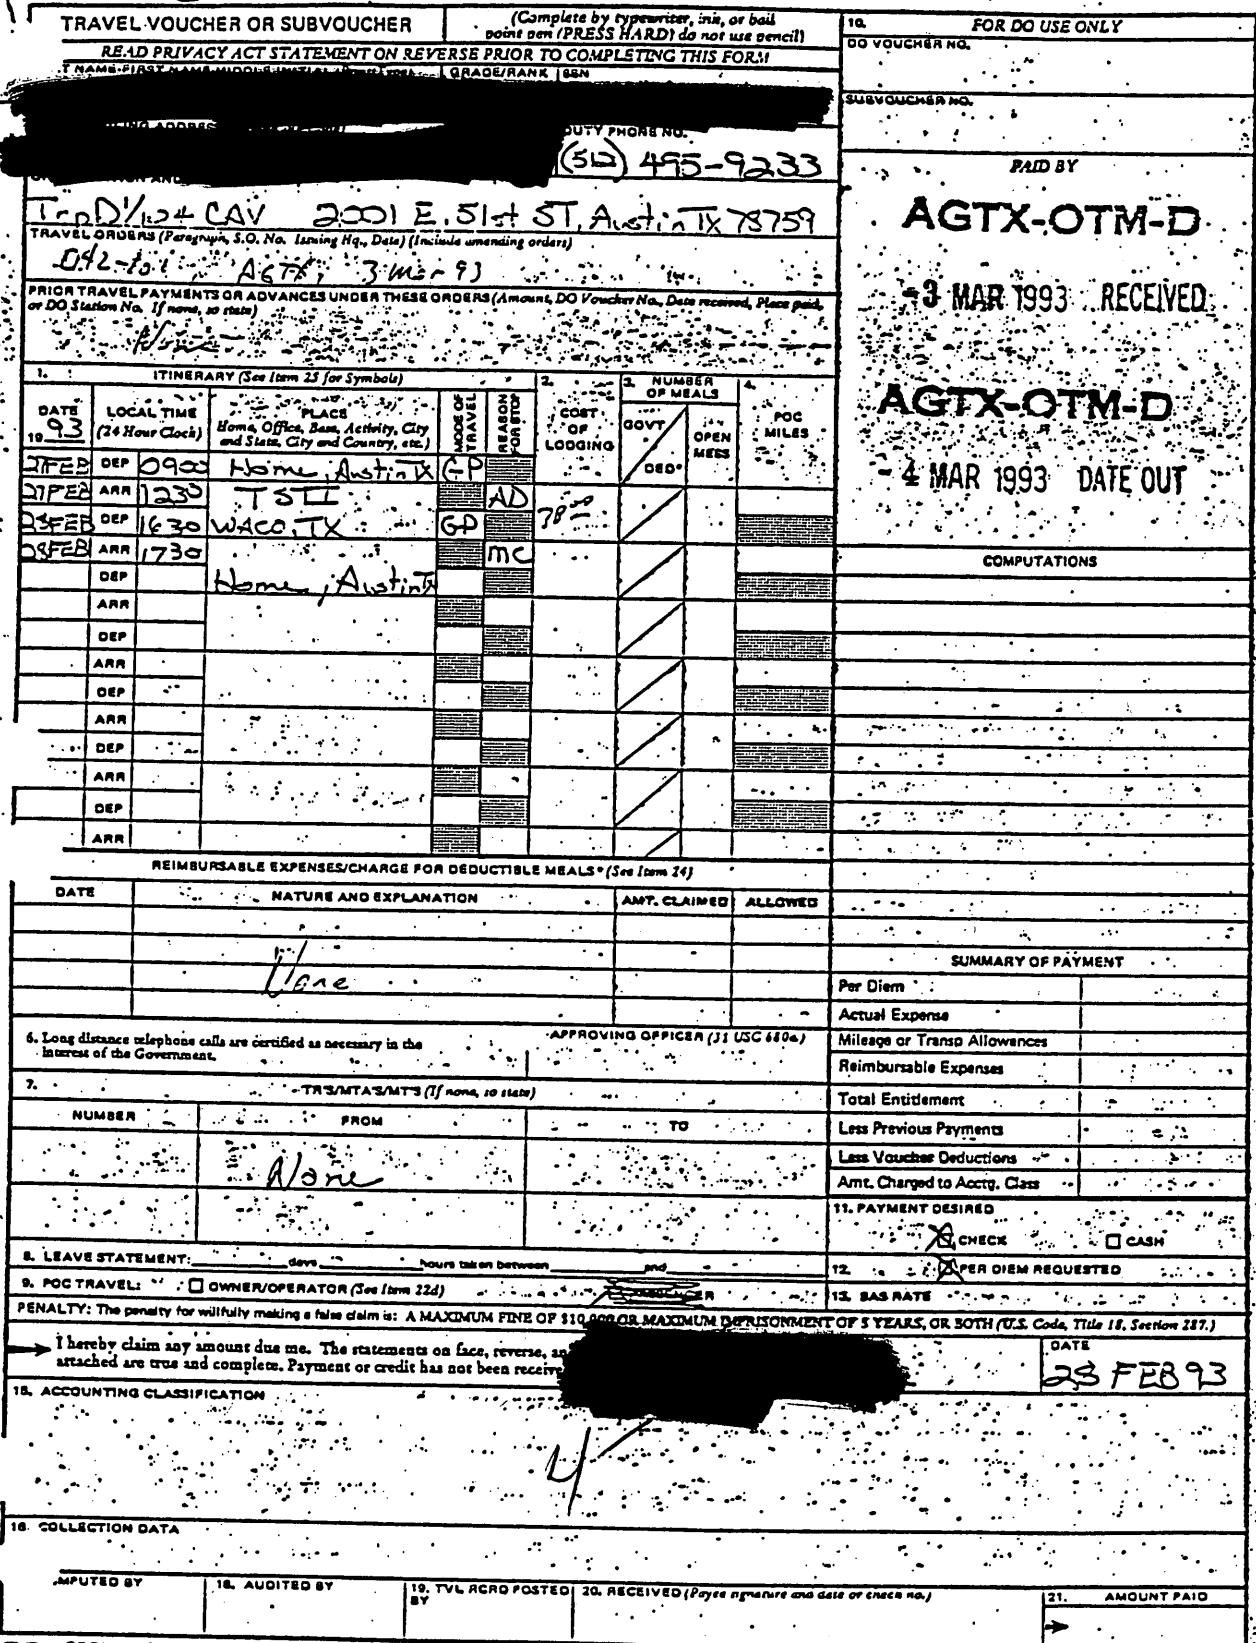 TRAVEL VOUCHER OR SUBVOUCHER
(Complete by typewriter, ink, or ball
point pen (PRESS HARD) do not use pencil)
READ PRIVACY ACT STATEMENT ON REVERSE PRIOR TO COMPLETING THIS FORM
GRADE/RANK SSN
DUTY PHONE NO.
(512) 495-9233
TrpD 1/124 CAV 2001 E. 51st ST, Austin TX 78759
TRAVEL ORDERS (Paragraph, S.O. No. Issuing Hq., Date) (Include amending orders)
AGTX, 3 Mar 93
PRIOR TRAVEL PAYMENTS OR ADVANCES UNDER THESE ORDERS (Amount, DO Voucher No., Date received, Place paid,
or DO Station No. If none, so state)
None
1. ITINERARY (See Item 25 for Symbols)
DATE
19 93
LOCAL TIME
(24 Hour Clock)
PLACE
Home, Office, Base, Activity, City
and State, City and Country, etc.)
MODE OF
TRAVEL
REASON
FOR STOP
2. COST
OF
LODGING
3. NUMBER
OF MEALS
GOVT
DED*
OPEN
MESS
4. POC
MILES
27FEB DEP 0900 Home, Austin TX GP
27FEB ARR 1230 TSTI AD
28FEB DEP 1630 WACO, TX GP 38
28FEB ARR 1730 MC
DEP Home, Austin TX
ARR
DEP
ARR
DEP
ARR
DEP
ARR
DEP
ARR
REIMBURSABLE EXPENSES/CHARGE FOR DEDUCTIBLE MEALS* (See Item 24)
DATE NATURE AND EXPLANATION AMT. CLAIMED ALLOWED
None
6. Long distance telephone calls are certified as necessary in the
interest of the Government.
APPROVING OFFICER (31 USC 680a)
7. TR'S/MTA'S/MT'S (If none, so state)
NUMBER FROM TO
None
8. LEAVE STATEMENT: days hours taken between and
9. POC TRAVEL: OWNER/OPERATOR (See Item 22d)
10. FOR DO USE ONLY
DO VOUCHER NO.
SUBVOUCHER NO.
PAID BY
AGTX-OTM-D
-3 MAR 1993 RECEIVED
AGTX-OTM-D
-4 MAR 1993 DATE OUT
COMPUTATIONS
SUMMARY OF PAYMENT
Per Diem
Actual Expense
Mileage or Transp Allowances
Reimbursable Expenses
Total Entitlement
Less Previous Payments
Less Voucher Deductions
Amt. Charged to Acctg. Class
11. PAYMENT DESIRED
CHECK CASH
12. PER DIEM REQUESTED
13. BAS RATE
PENALTY: The penalty for willfully making a false claim is: A MAXIMUM FINE OF $10,000 OR MAXIMUM IMPRISONMENT OF 5 YEARS, OR BOTH (U.S. Code, Title 18, Section 287.)
I hereby claim any amount due me. The statements on face, reverse,
attached are true and complete. Payment or credit has not been
DATE
28 FEB 93
15. ACCOUNTING CLASSIFICATION
16. COLLECTION DATA
18. AUDITED BY
19. TVL RCRD POSTED
BY
20. RECEIVED (Payee signature and date or check no.)
21. AMOUNT PAID